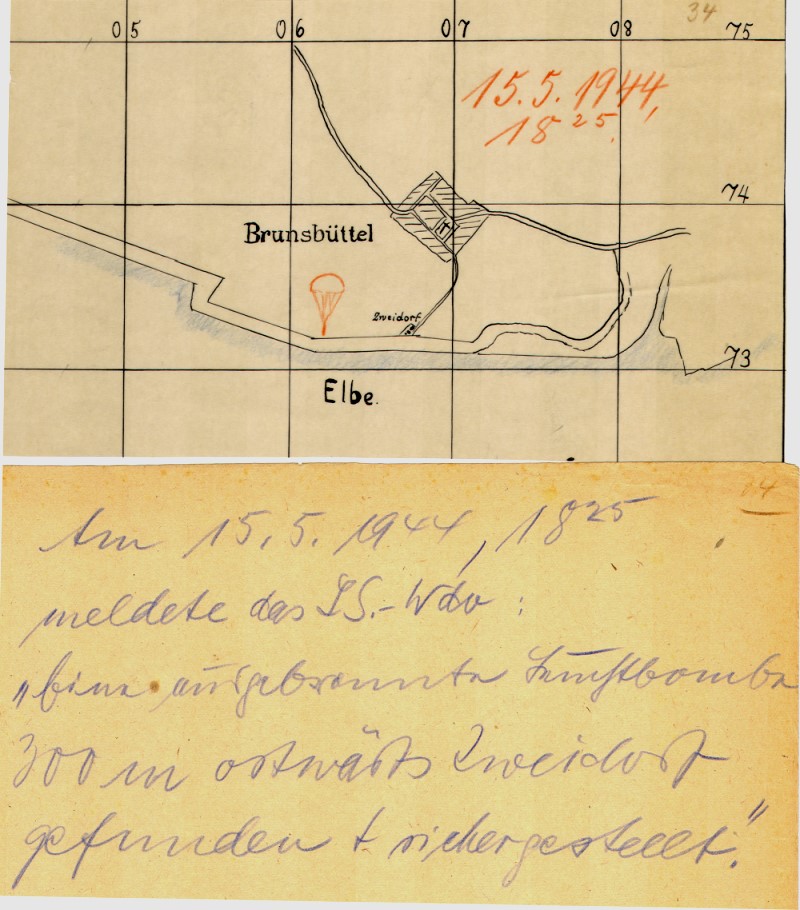 34
05 06 07 08 75
15.5.1944,
18 25.
74
Brunsbüttel
Zweidorf
73
Elbe.
04
Am 15.5.1944, 18 25
meldete das LS.-Wdo :
„Eine ausgebrannte Leuchtbombe
300 m ostwärts Zweidorf
gefunden + sichergestellt."